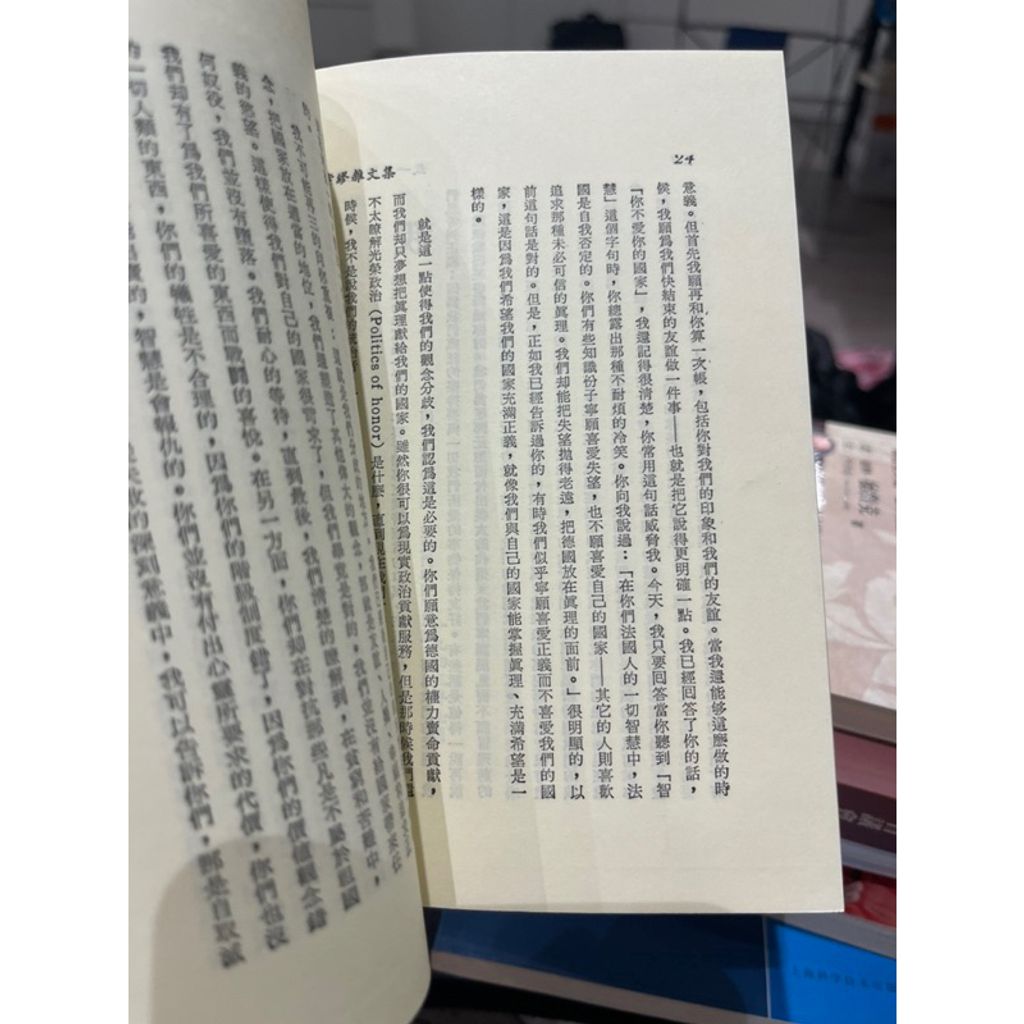 24
意義。但首先我願再和你算一次帳，包括你對我們的印象和我們的友誼。當我還能够這麽做的時
候，我願爲我們快結束的友誼做一件事——也就是把它說得更明確一點。我已經回答了你的話，
「你不愛你的國家」，我還記得很清楚，你常用這句話威脅我。今天，我只要回答當你聽到「智
慧」這個字句時，你總露出那種不耐煩的冷笑。你向我說過：「在你們法國人的一切智慧中，法
國是自我否定的。你們有些知識份子寧願喜愛失望，也不願喜愛自己的國家——其它的人則喜歡
追求那種未必可信的眞理。我們却能把失望拋得老遠，把德國放在眞理的面前。」很明顯的，以
前這句話是對的。但是，正如我已經告訴過你的，有時我們似乎寧願喜愛正義而不喜愛我們的國
家，這是因爲我們希望我們的國家充滿正義，就像我們與自己的國家能掌握眞理、充滿希望是一
樣的。
就是這一點使得我們的觀念分歧，我們認爲這是必要的。你們願意爲德國的權力賣命貢獻，
而我們却只夢想把眞理獻給我們的國家。雖然你很可以爲現實政治貢獻服務，但是那時候我們還
不太瞭解光榮政治（Politics of honor）是什麽，直到現在我們
時候，我不是說我們的
繆雜文集
念，把國家放在適當的地位，我們還應
義的慾望。這樣使得我們對自己的國家很苛求了，但我們畢竟是對的。我們並沒有給國家帶來任
何奴役，我們並沒有墮落。我們耐心的等待，直到最後，我們淸楚的瞭解到，在貧窮和苦難中，
我們却有了爲我們所喜愛的東西而戰鬪的喜悅。在另一方面，你們却在對抗那些凡是不屬於祖國
的一切人類的東西，你們的犧牲是不合理的，因爲你們的階級制度錯了，因爲你們的價值觀念錯
的，智慧是會報仇的。你們並沒有付出心靈所要求的代價，你們也沒
的深刻意義中，我可以告訴你們，那是自取滅